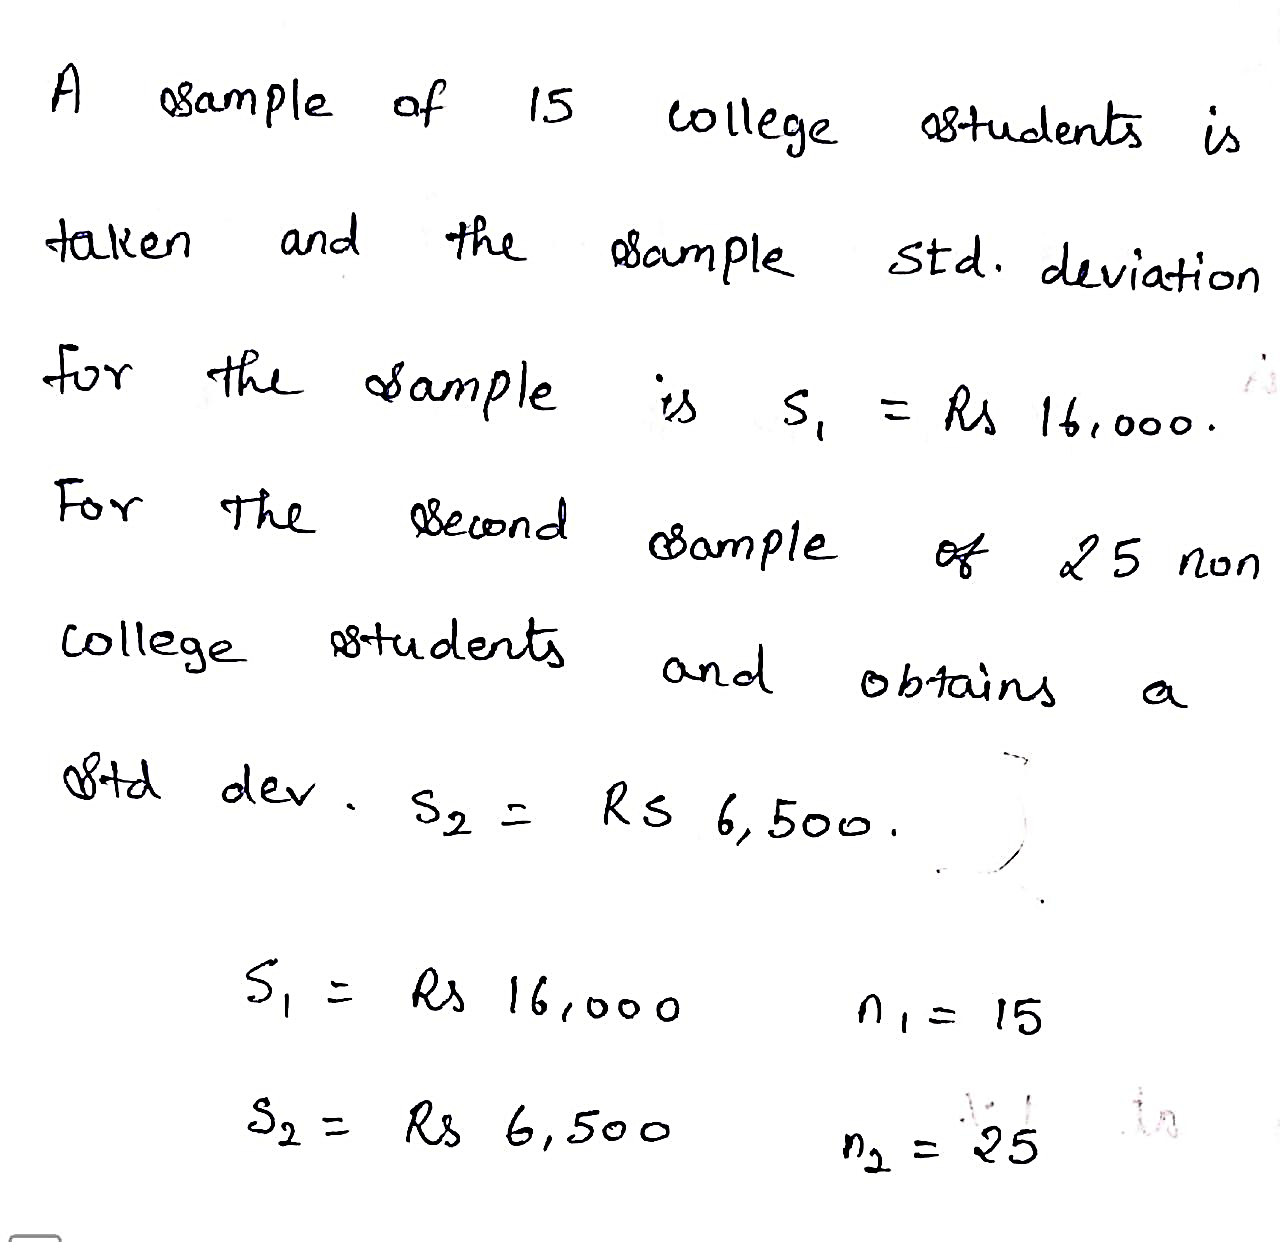 A sample of 15 college students is
taken and the sample std. deviation
for the sample is S₁ = Rs 16,000.
For the second sample of 25 non
college students and obtains a
std dev. S₂ = RS 6,500.
S₁ = Rs 16,000 n₁ = 15
S₂ = Rs 6,500 n₂ = 25